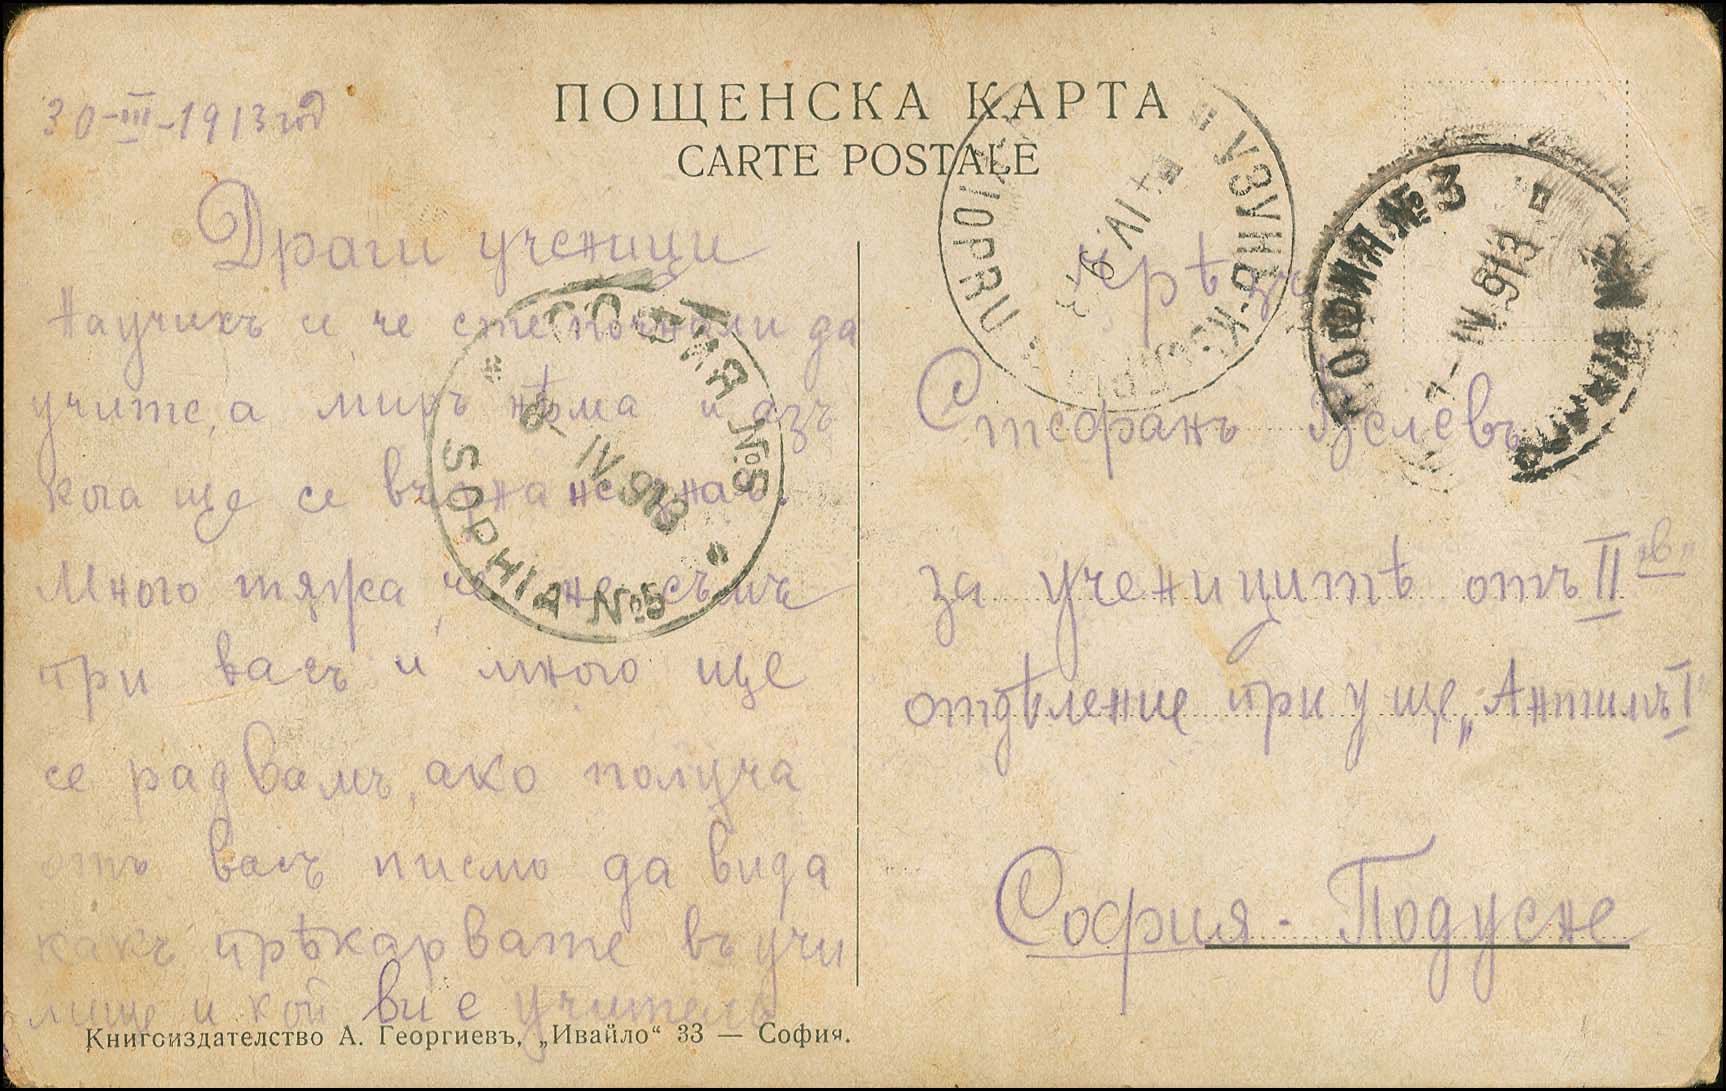 ПОЩЕНСКА КАРТА
CARTE POSTALE
30-III-1913 год
Драги ученици
Научихъ и, че сте почнали да
учите, а миръ нѣма и азъ
кога ще се върна не зная.
Много тяжа, че не съмъ
при васъ и много ще
се радвамъ, ако получа
отъ васъ писмо да видя
какъ прѣкарвате въ учи
лище и кой ви е учитель
Книгоиздателство А. Георгиевъ, „Ивайло“ 33 — София.
чрѣзъ
Стефанъ
за ученицитѣ отъ II "в"
отдѣление при у-ще „Антимъ I"
София - Подуене
СОФИЯ №5
8-IV.913
SOPHIA №5
УЗУНЪ-КЮПРЮ
IV.913
СОФИЯ №3
7-IV.913